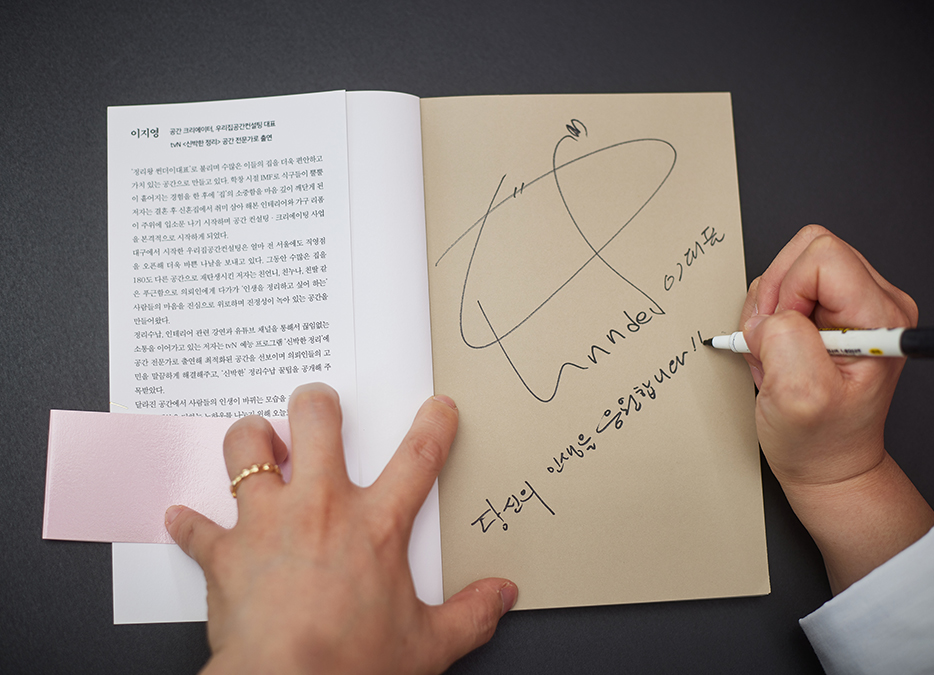 이지영 공간 크리에이터, 우리집공간컨설팅 대표
tvN <신박한 정리> 공간 전문가로 출연
'정리왕 썬더이대표'로 불리며 수많은 이들의 집을 더욱 편안하고
가치 있는 공간으로 만들고 있다. 학창 시절 IMF로 식구들이 뿔뿔
이 흩어지는 경험을 한 후에 '집'의 소중함을 마음 깊이 깨닫게 된
저자는 결혼 후 신혼집에서 취미 삼아 해본 인테리어와 가구 리폼
이 주위에 입소문 나기 시작하며 공간 컨설팅·크리에이팅 사업
을 본격적으로 시작하게 되었다.
대구에서 시작한 우리집공간컨설팅은 얼마 전 서울에도 직영점
을 오픈해 더욱 바쁜 나날을 보내고 있다. 그동안 수많은 집을
180도 다른 공간으로 재탄생시킨 저자는 친언니, 친누나, 친딸 같
은 푸근함으로 의뢰인에게 다가가 '인생을 정리하고 싶어 하는'
사람들의 마음을 진심으로 위로하며 진정성이 녹아 있는 공간을
만들어왔다.
정리수납, 인테리어 관련 강연과 유튜브 채널을 통해서 끊임없는
소통을 이어가고 있는 저자는 tvN 예능 프로그램 '신박한 정리'에
공간 전문가로 출연해 최적화된 공간을 선보이며 의뢰인들의 고
민을 말끔하게 해결해주고, '신박한' 정리수납 꿀팁을 공개해 주
목받았다.
달라진 공간에서 사람들의 인생이 바뀌는 모습을
이대표
당신의 인생을 응원합니다!!